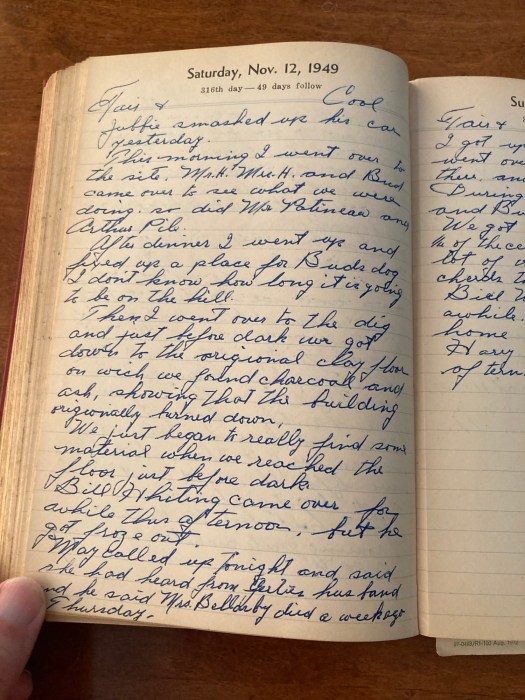 Saturday, Nov. 12, 1949
316th day — 49 days follow
Fair & Cool
smashed up his car
yesterday.
This morning I went over to
the site. Mr. H. Mrs. H. and Bud
came over to see what we were
doing. so did Mr Patineau and
Arthur
After dinner I went up and
fixed up a place for Buds dog
I don't know how long it is going
to be on the hill.
Then I went over to the dig
and just before dark we got
down to the origional clay floor
on wich we found charcoal and
ash, showing that the building
origionally burned down.
We just began to really find some
material when we reached the
floor just before dark
Bill Whiting came over for
awhile this afternoon, but he
got froze out.
May called up tonight and said
she had heard from husband
nd he said Mrs. Bellarby died a week ago
Thursday.
Su
Fair &
I got up
went ove
there. an
During
and Bu
We got
of the ce
lot of
chards
Bill
awhile.
home
Harry
of tern